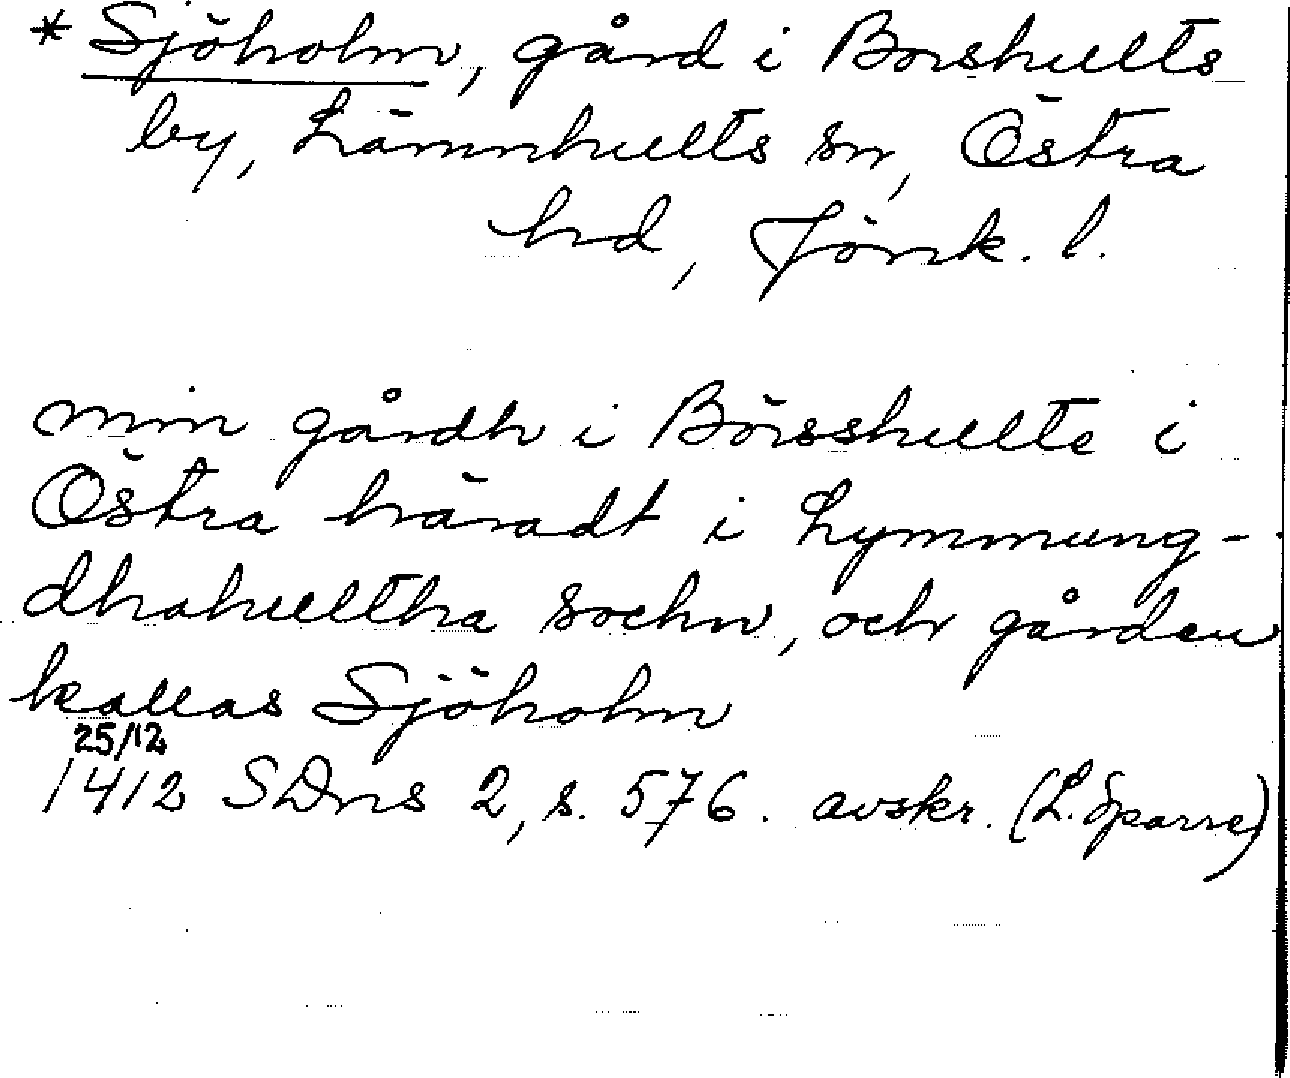 * Sjöholm, gård i Borshults
by, Lämnhults sn, Östra
hd, Jönk. l.
min gårdh i Börsshulte i
Östra häradt i Lymmung-
dhahultha sochn, och gården
kallas Sjöholm
25/12
1412 SDns 2, s. 576. avskr. (L. Sparre)